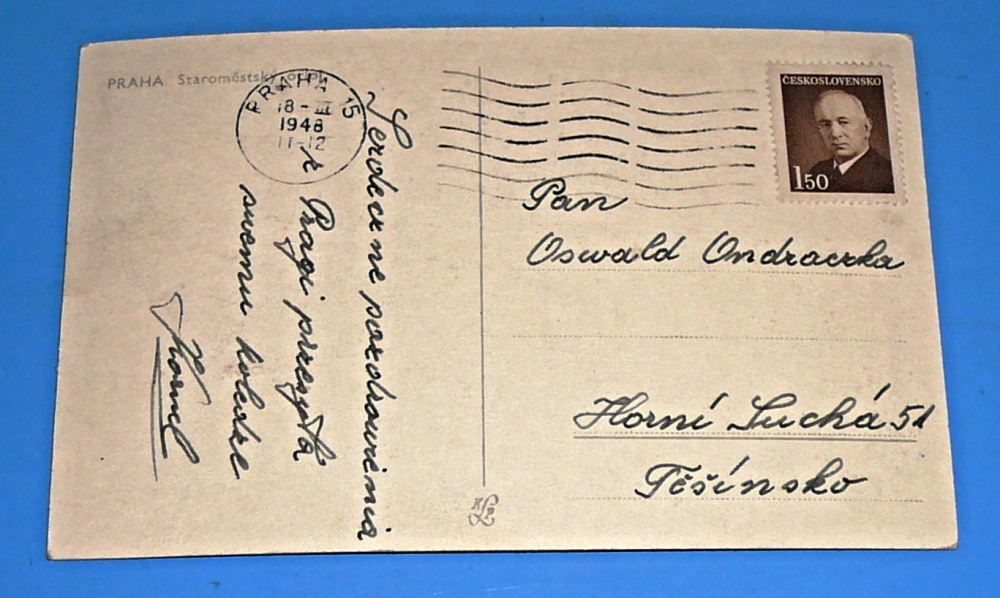 PRAHA Staroměstský orloj
PRAHA 15
18-III
1948
11-12
ČESKOSLOVENSKO
1 50
Serdeczne pozdrowienia
z Pragi przesyła
swemu koledze
Kornel
Pan
Oswald Ondraczka
Horní Suchá 51
Těšínsko